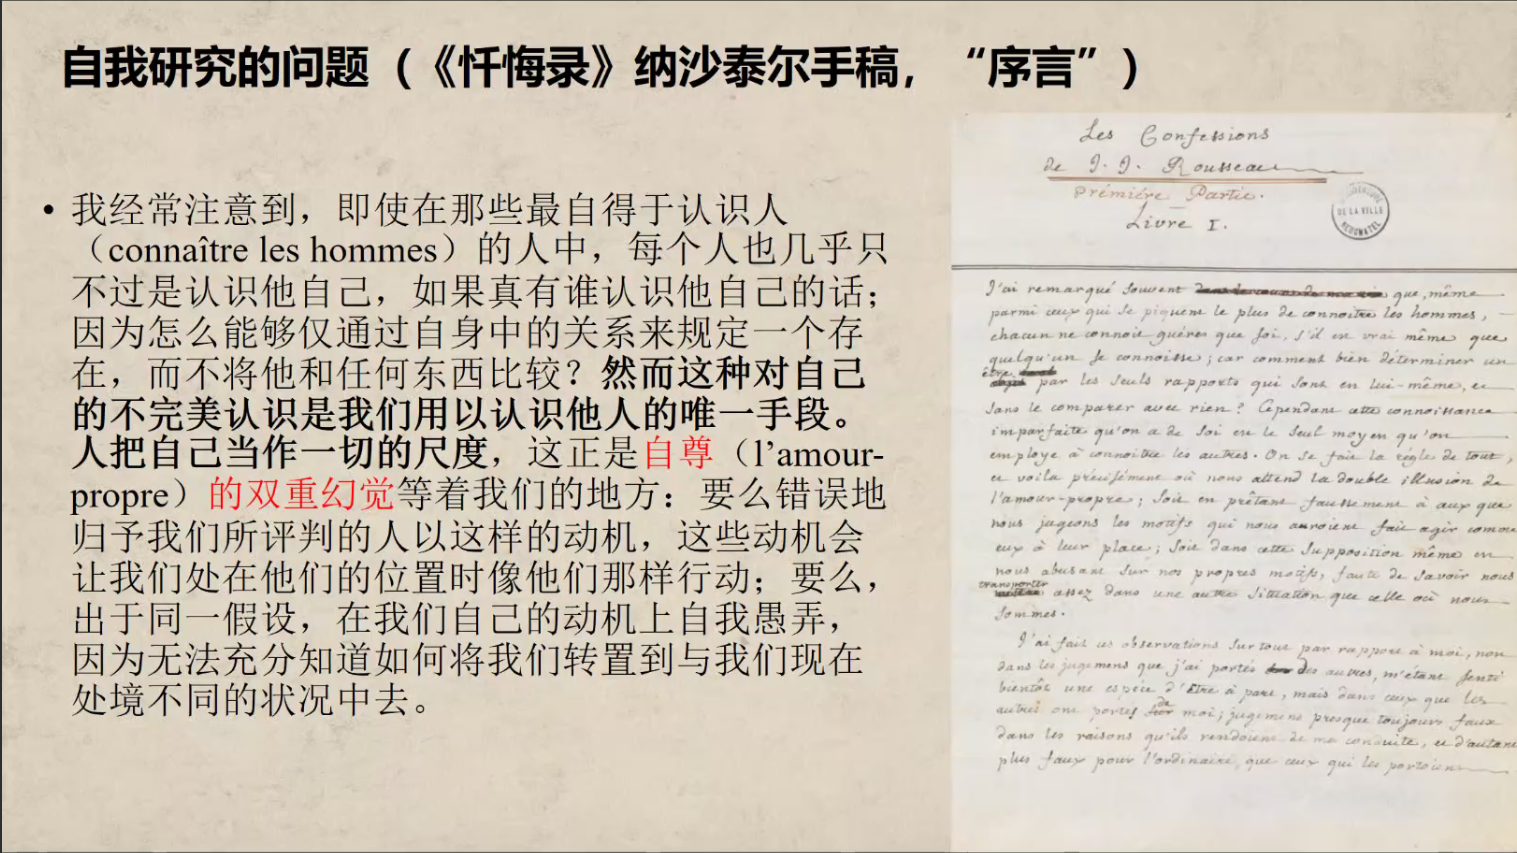 自我研究的问题（《忏悔录》纳沙泰尔手稿，“序言”）
• 我经常注意到，即使在那些最自得于认识人
（connaître les hommes）的人中，每个人也几乎只
不过是认识他自己，如果真有谁认识他自己的话；
因为怎么能够仅通过自身中的关系来规定一个存
在，而不将他和任何东西比较？然而这种对自己
的不完美认识是我们用以认识他人的唯一手段。
人把自己当作一切的尺度，这正是自尊（l’amour-
propre）的双重幻觉等着我们的地方：要么错误地
归予我们所评判的人以这样的动机，这些动机会
让我们处在他们的位置时像他们那样行动；要么，
出于同一假设，在我们自己的动机上自我愚弄，
因为无法充分知道如何将我们转置到与我们现在
处境不同的状况中去。
Les Confessions
de J. J. Rousseau
Prémiére Partie.
Livre I.
DE LA VILLE
J'ai remarqué souvent que, même
parmi ceux qui se piquent le plus de connoitre les hommes,
chacun ne connoit guéres que soi, s'il est vrai même que
quelqu'un se connoisse ; car comment bien déterminer un
être par les seuls rapports qui sont en lui-même, et
sans le comparer avec rien ? Cependant cette connoissance
imparfaite qu'on a de soi est le seul moyen qu'on
employe à connoitre les autres. On se fait la régle de tout,
et voila précisément où nous attend la double illusion de
l'amour-propre ; soit en prêtant faussement à ceux que
nous jugeons les motifs qui nous auroient fait agir comme
eux à leur place ; soit dans cette supposition même en
nous abusant sur nos propres motifs, faute de savoir nous
transporter assez dans une autre situation que celle où nous
sommes.
J'ai fait ces observations surtout par rapport à moi, non
dans les jugemens que j'ai portés des autres, m'étant senti
bientôt une espéce d'être à part, mais dans ceux que les
autres ont portés de moi ; jugemens presque toujours faux
dans les raisons qu'ils rendoient de ma conduite, et d'autant
plus faux pour l'ordinaire, que ceux qui les portoient